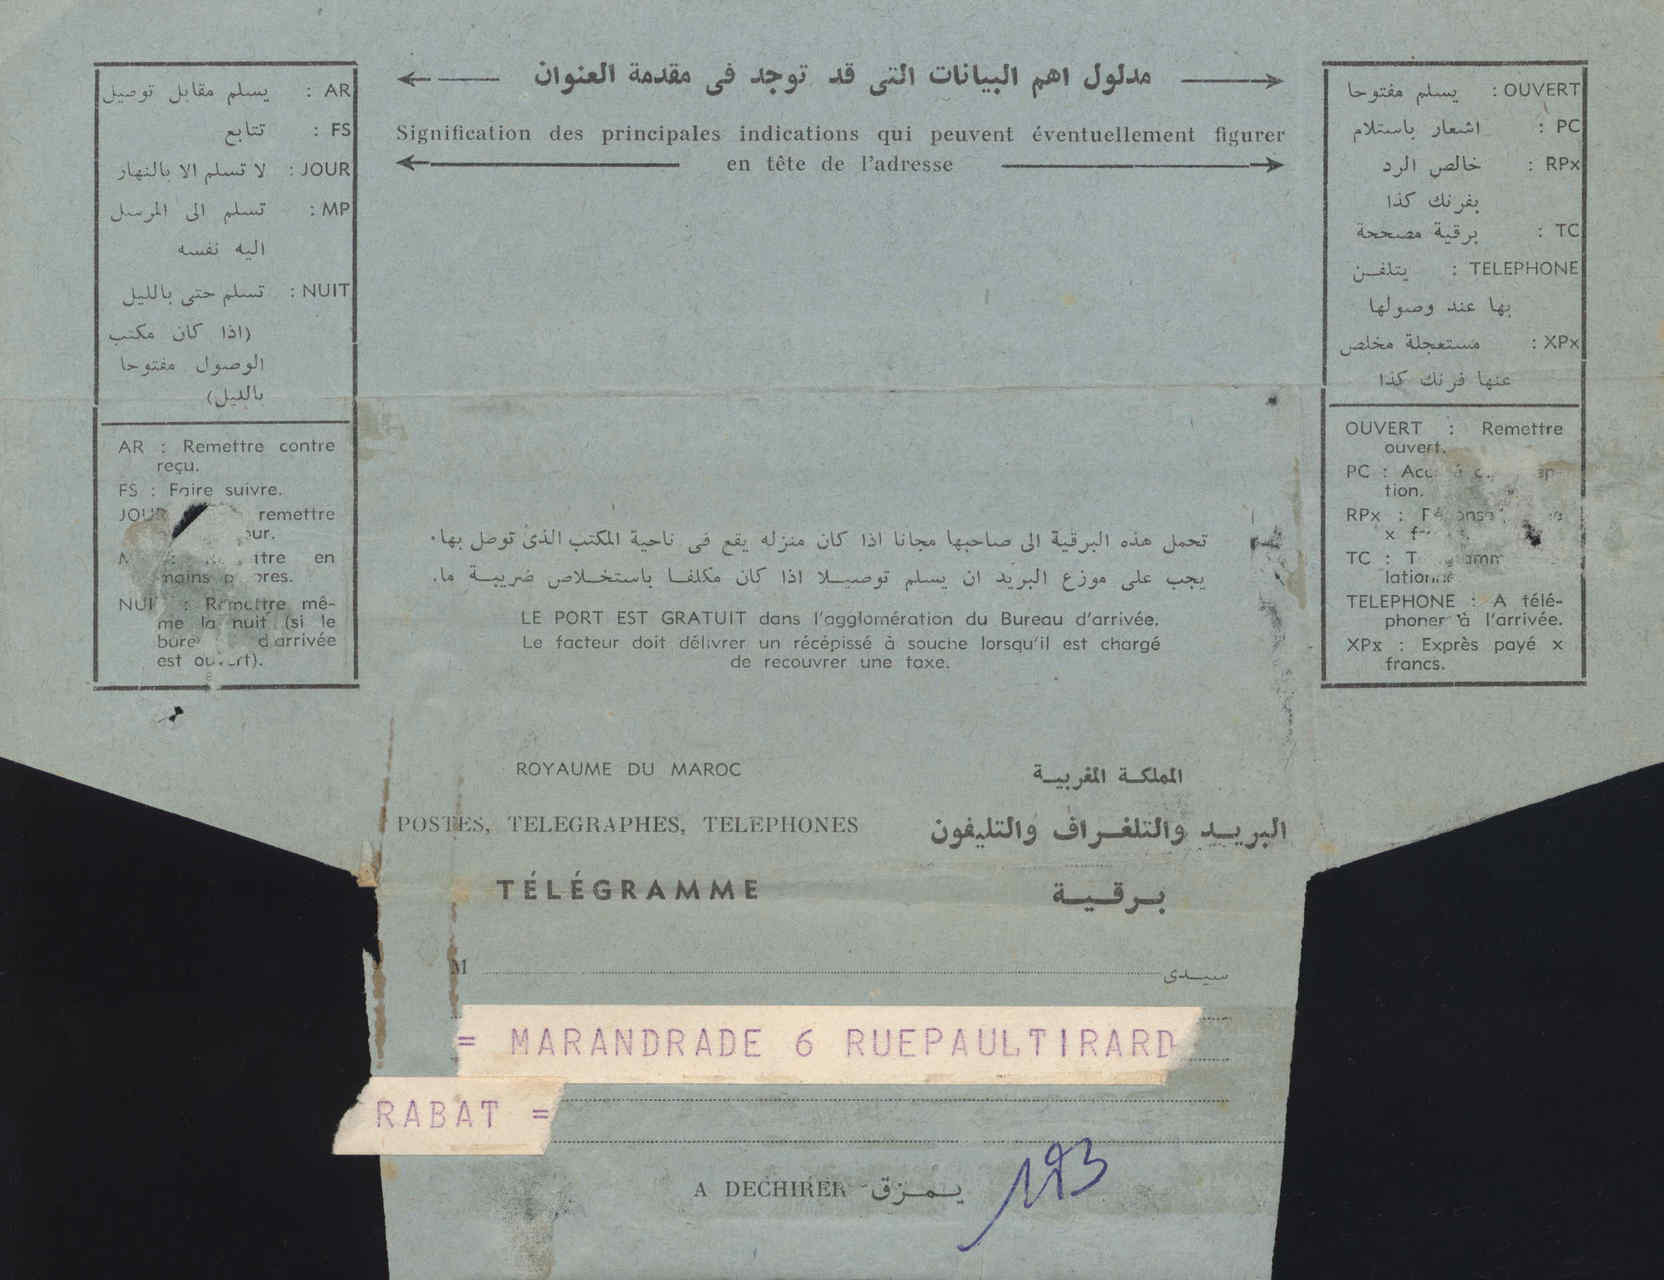 مدلول اهم البيانات التى قد توجد فى مقدمة العنوان
Signification des principales indications qui peuvent éventuellement figurer
en tête de l'adresse
AR : يسلم مقابل توصيل
FS : تتابع
JOUR : لا تسلم الا بالنهار
MP : تسلم الى المرسل
اليه نفسه
NUIT : تسلم حتى بالليل
(اذا كان مكتب
الوصول مفتوحا
بالليل)
AR : Remettre contre
reçu.
FS : Faire suivre.
JOUR remettre
en
NUIT : Remettre mê-
me la nuit (si le
d'arrivée
est ouvert).
OUVERT : يسلم مفتوحا
PC : اشعار باستلام
RPx : خالص الرد
بفرنك كذا
TC : برقية مصححة
TELEPHONE : يتلفن
بها عند وصولها
XPx : مستعجلة مخلص
عنها فرنك كذا
OUVERT : Remettre
ouvert.
PC :
tion.
RPx :
x
TC :
TELEPHONE : A télé-
phoner à l'arrivée.
XPx : Exprès payé x
francs.
تحمل هذه البرقية الى صاحبها مجانا اذا كان منزله يقع فى ناحية المكتب الذى توصل بها.
يجب على موزع البريد ان يسلم توصيلا اذا كان مكلفا باستخلاص ضريبة ما.
LE PORT EST GRATUIT dans l'agglomération du Bureau d'arrivée.
Le facteur doit délivrer un récépissé à souche lorsqu'il est chargé
de recouvrer une taxe.
ROYAUME DU MAROC المملكة المغربية
POSTES, TELEGRAPHES, TELEPHONES البريد والتلغراف والتليفون
TÉLÉGRAMME برقية
M سيدى
= MARANDRADE 6 RUEPAULTIRARD
RABAT =
A DECHIRER يمزق
193